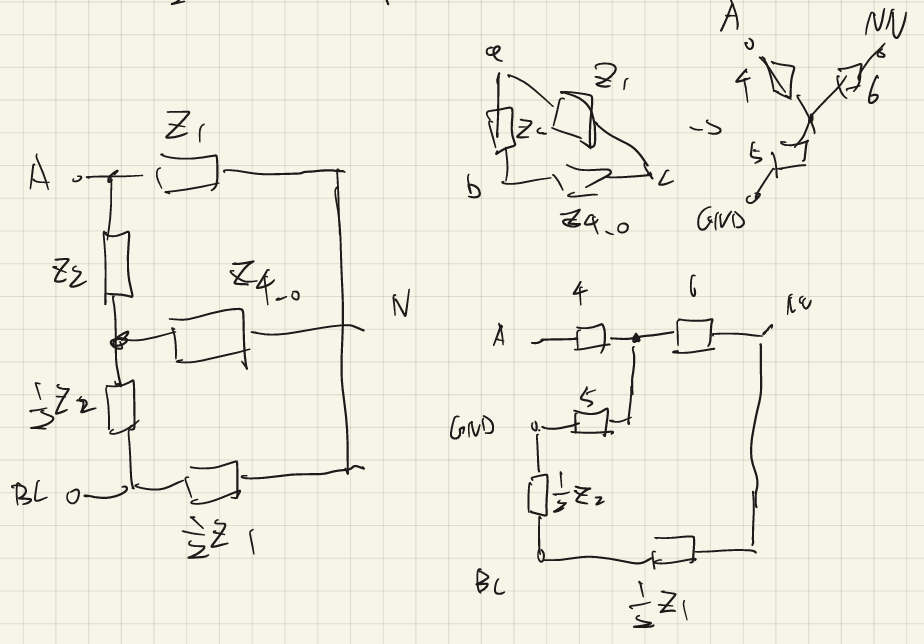 Z1
A
Z2
Z4_0
N
1/2 Z2
BC
1/2 Z1
a
Z1
Z2
b
c
Z4_0
->
A
NN
4
6
5
GND
4
6
A
5
GND
1/2 Z2
BC
1/2 Z1